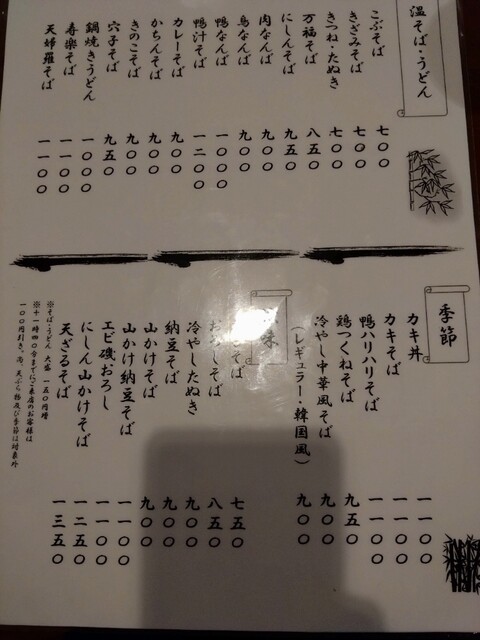 温そば・うどん
こぶそば 七〇〇
きざみそば 七〇〇
きつね・たぬき 七〇〇
万福そば 八五〇
にしんそば 九五〇
肉なんば 九〇〇
鳥なんば 九〇〇
鴨なんば 一〇〇〇
鴨汁そば 一二〇〇
カレーそば 九〇〇
かちんそば 九〇〇
きのこそば 九〇〇
穴子そば 九五〇
鍋焼きうどん 一〇〇〇
寿楽そば 一一〇〇
天婦羅そば 一一〇〇
季節
カキ丼 一一〇〇
カキそば
鴨ハリハリそば
鶏つくねそば 九五〇
冷やし中華風そば 九〇〇
(レギュラー・韓国風) 九〇〇
味
そば 七五〇
おろしそば 八五〇
冷やしたぬき 九〇〇
納豆そば 九〇〇
山かけそば 九〇〇
山かけ納豆そば 一〇〇〇
エビ磯おろし 一一〇〇
にしん山かけそば 一二五〇
天ざるそば 一三五〇
※そば・うどん 大盛 一五〇円増
※十一時四〇分までにご来店のお客様は
一〇〇円引き。尚、天ぷら物及び季節は対象外